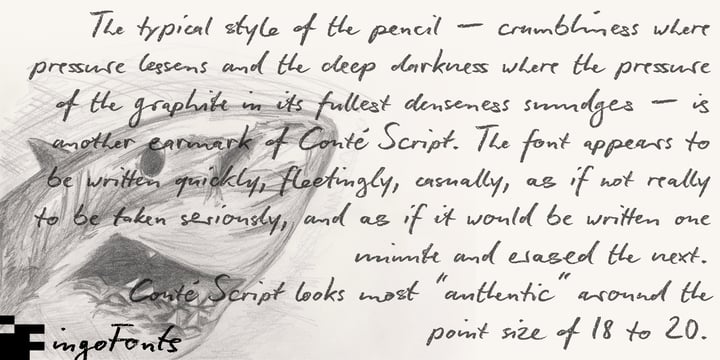 The typical style of the pencil — crumbliness where
pressure lessens and the deep darkness where the pressure
of the graphite in its fullest denseness smudges — is
another earmark of Conté Script. The font appears to
be written quickly, fleetingly, casually, as if not really
to be taken seriously, and as if it would be written one
minute and erased the next.
Conté Script looks most "authentic" around the
point size of 18 to 20.
ingoFonts